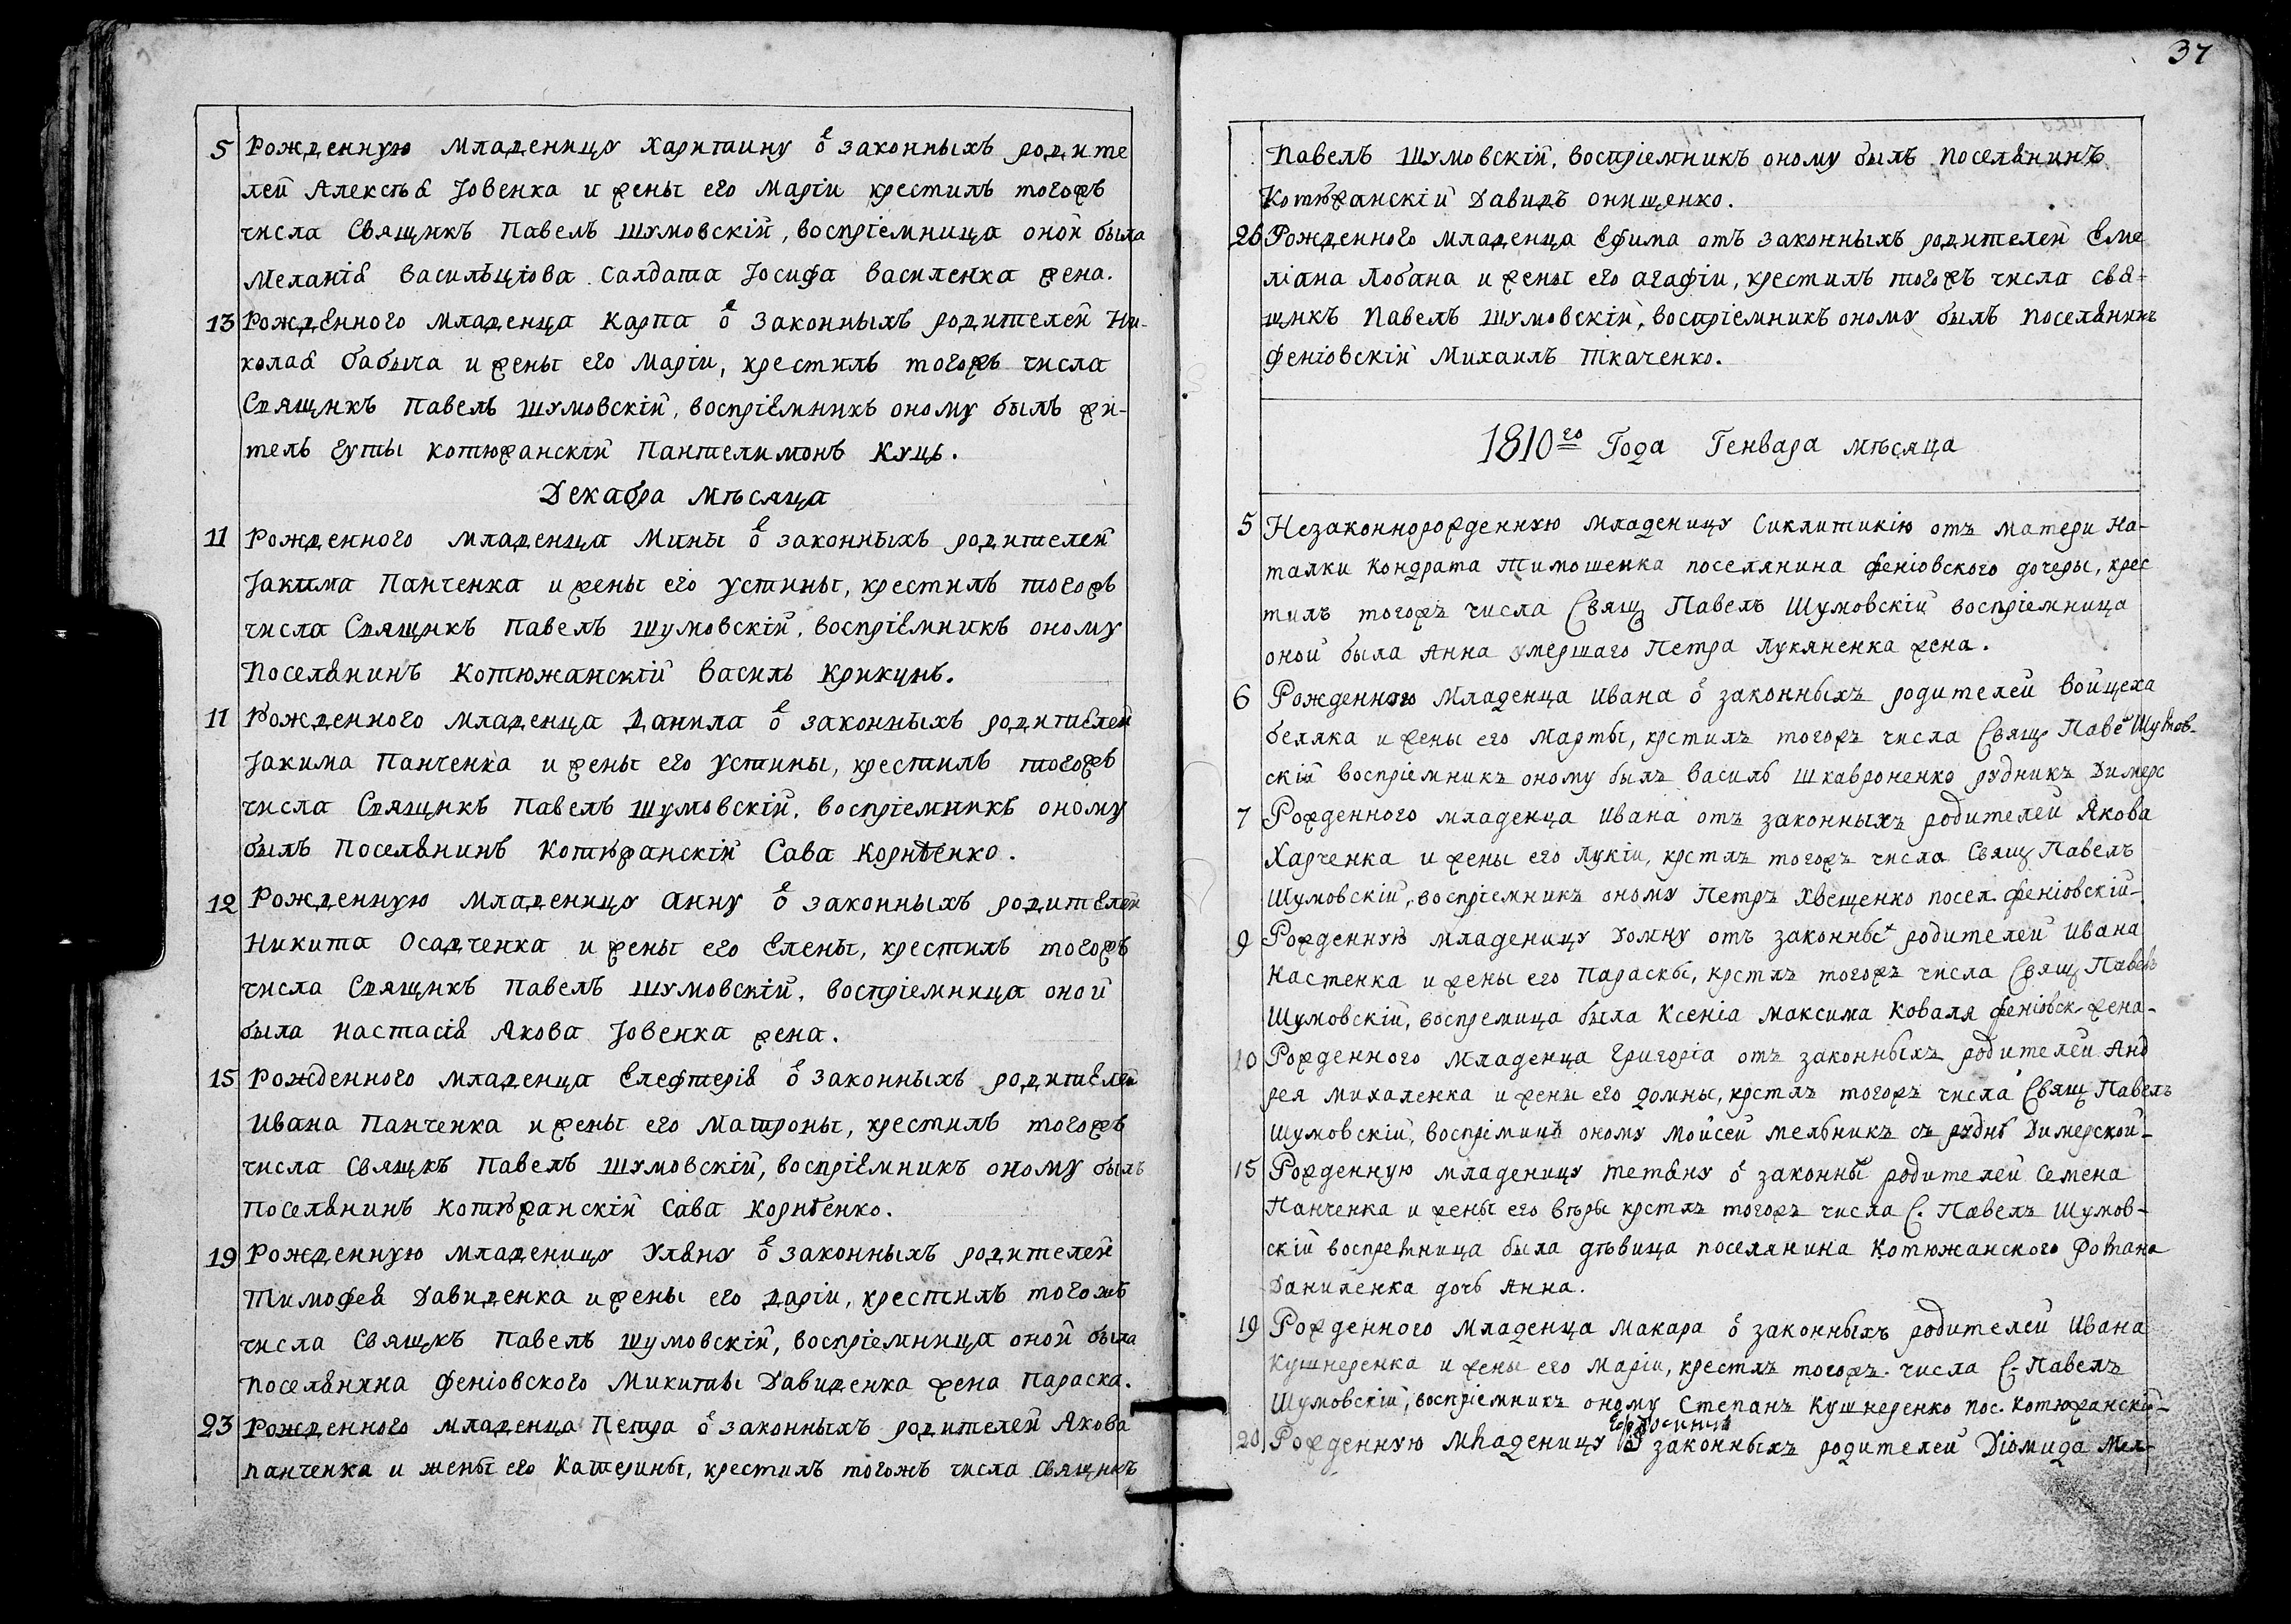 5 Рожденную младеницу Харитину ѿ законныхъ родите
лей Алексѣя Іовенка и жены его Маріи крестилъ тогожъ
числа Свящнкъ Павелъ Шумовскій, воспріемница оной была
Меланія Васильціова Салдата Іосифа Василенка жена.
13 Рожденного младенца Карпа ѿ законныхъ родителей Ни-
колая бабыча и жены его Маріи, крестилъ тогожъ числа
Свящнкъ Павелъ Шумовскій, воспріемникъ оному былъ жи-
тель гуты Котюжанскій Пантелимонъ Куць.
Декабра мѣсяца
11 Рожденного младенца Мины ѿ законныхъ родителей
Іакима Панченка и жены его Устины, крестилъ тогожъ
числа Свящнкъ Павелъ Шумовскій, воспріемникъ оному
Поселянинъ Котюжанскій Василь Крикунъ.
11 Рожденного младенца Данила ѿ законныхъ родителей
Іакима Панченка и жены его Устины, крестилъ тогожъ
числа Свящнкъ Павелъ Шумовскій, воспріемникъ оному
былъ Поселянинъ Котюжанскій Сава Корнѣенко.
12 Рожденную младеницу Анну ѿ законныхъ родителей
Никита Осадченка и жены его Елены, крестилъ тогожъ
числа Свящнкъ Павелъ Шумовскій, воспріемница оной
была Настасія Якова Іовенка жена.
15 Рожденного младенца Елефтерія ѿ законныхъ родителей
Ивана Панченка и жены его Матроны, крестилъ тогожъ
числа Свящкъ Павелъ Шумовскій, воспріемникъ оному былъ
Поселянинъ Котюжанскій Сава Корнѣенко.
19 Рожденную младеницу Уляну ѿ законныхъ родителей
Тимофея Давиденка и жены его Даріи, крестилъ тогожъ
числа Свящкъ Павелъ Шумовскій, воспріемница оной была
поселянина феніовского Микиты Давиденка жена Параска.
23 Рожденного младенца Петра ѿ законныхъ родителей Якова
панченка и жены его Катерины, крестилъ тогожъ числа Свящнкъ
37
Павелъ Шумовскій, воспріемникъ оному былъ поселянинъ
Котюжанскій Давидъ Онищенко.
26 Рожденного младенца Ефима отъ законныхъ родителей Еме
ліана Лобана и жены его Агафіи, крестилъ тогожъ числа свя-
щнкъ Павелъ Шумовскій, воспріемникъ оному былъ поселянинъ
феніовскій Михаилъ Ткаченко.
1810го Года Генвара мѣсяца
5 Незаконнорожденную младеницу Сиклитикію отъ матери На-
талки Кондрата Тимошенка поселянина феніовского дочеры, крес
тилъ тогожъ числа Свящ Павелъ Шумовскій воспріемница
оной была Анна умершаго Петра Лукяненка жена.
6 Рожденного младенца Ивана ѿ законныхъ родителей Войцеха
беляка и жены его Марты, крстилъ тогожъ числа Свящ Паве Шумов-
скій воспріемникъ оному былъ Василь Шкавроненко рудникъ Димерс
7 Рожденного младенца Ивана отъ законныхъ родителей Якова
Харченка и жены его Лукіи, крстлъ тогожъ числа Свящ Павелъ
Шумовскій, воспріемникъ оному Петръ Хвещенко посел. феніовскій-
9 Рожденную младеницу Домну отъ законных родителей Ивана
Настенка и жены его Параскы, крстлъ тогожъ числа Свящ Павелъ
Шумовскій, воспремица была Ксенія Максима Коваля феніовск. жена-
10 Рожденного младенца Григоріа отъ законныхъ родителей Анд
рея Михаленка и жены его Домны, крстлъ тогожъ числа Свящ Павелъ
Шумовскій, воспріміцъ оному Мойсей Мельникъ съ руднѣ Димерской-
15 Рожденную младеницу Тетяну ѿ законны родителей Семена
Панченка и жены его Вѣры крстлъ тогожъ числа С. Павелъ Шумов-
скій воспремница была дѣвица поселянина Котюжанского Романа
Даниленка дочь Анна.
19 Рожденного младенца Макара ѿ законныхъ родителей Ивана
Кушнеренка и жены его Маріи, крестлъ тогожъ числа С. Павелъ
Шумовскій, воспріемникъ оному Степанъ Кушнеренко пос. Котюжанскій-
20 Рожденную младеницу ѿ законныхъ родителей Діомида Мел-